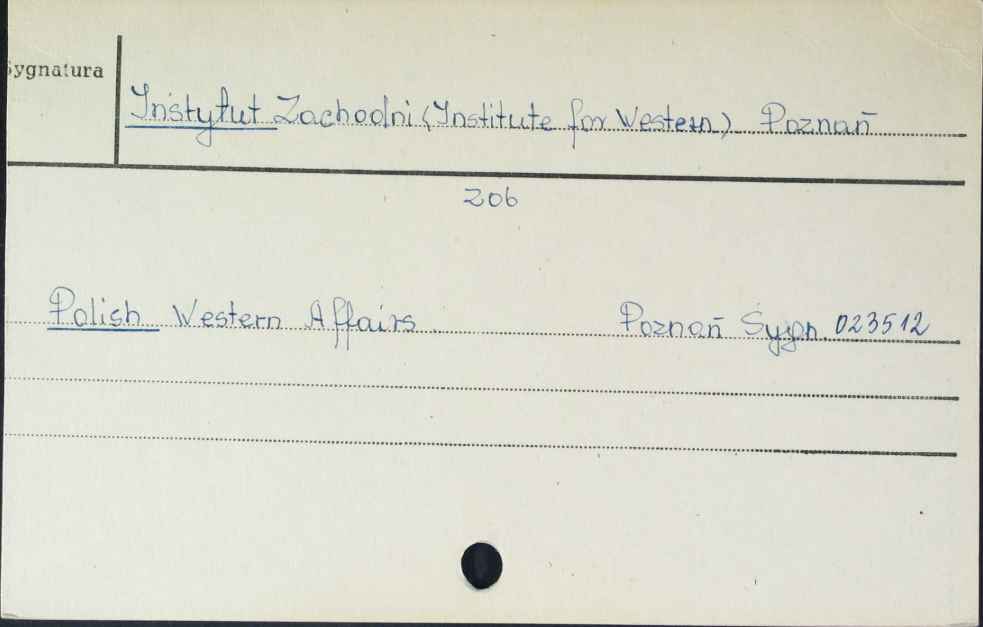 Sygnatura
Instytut Zachodni (Institute for Western) Poznań
Zob
Polish Western Affairs. Poznań Sygn. 023512